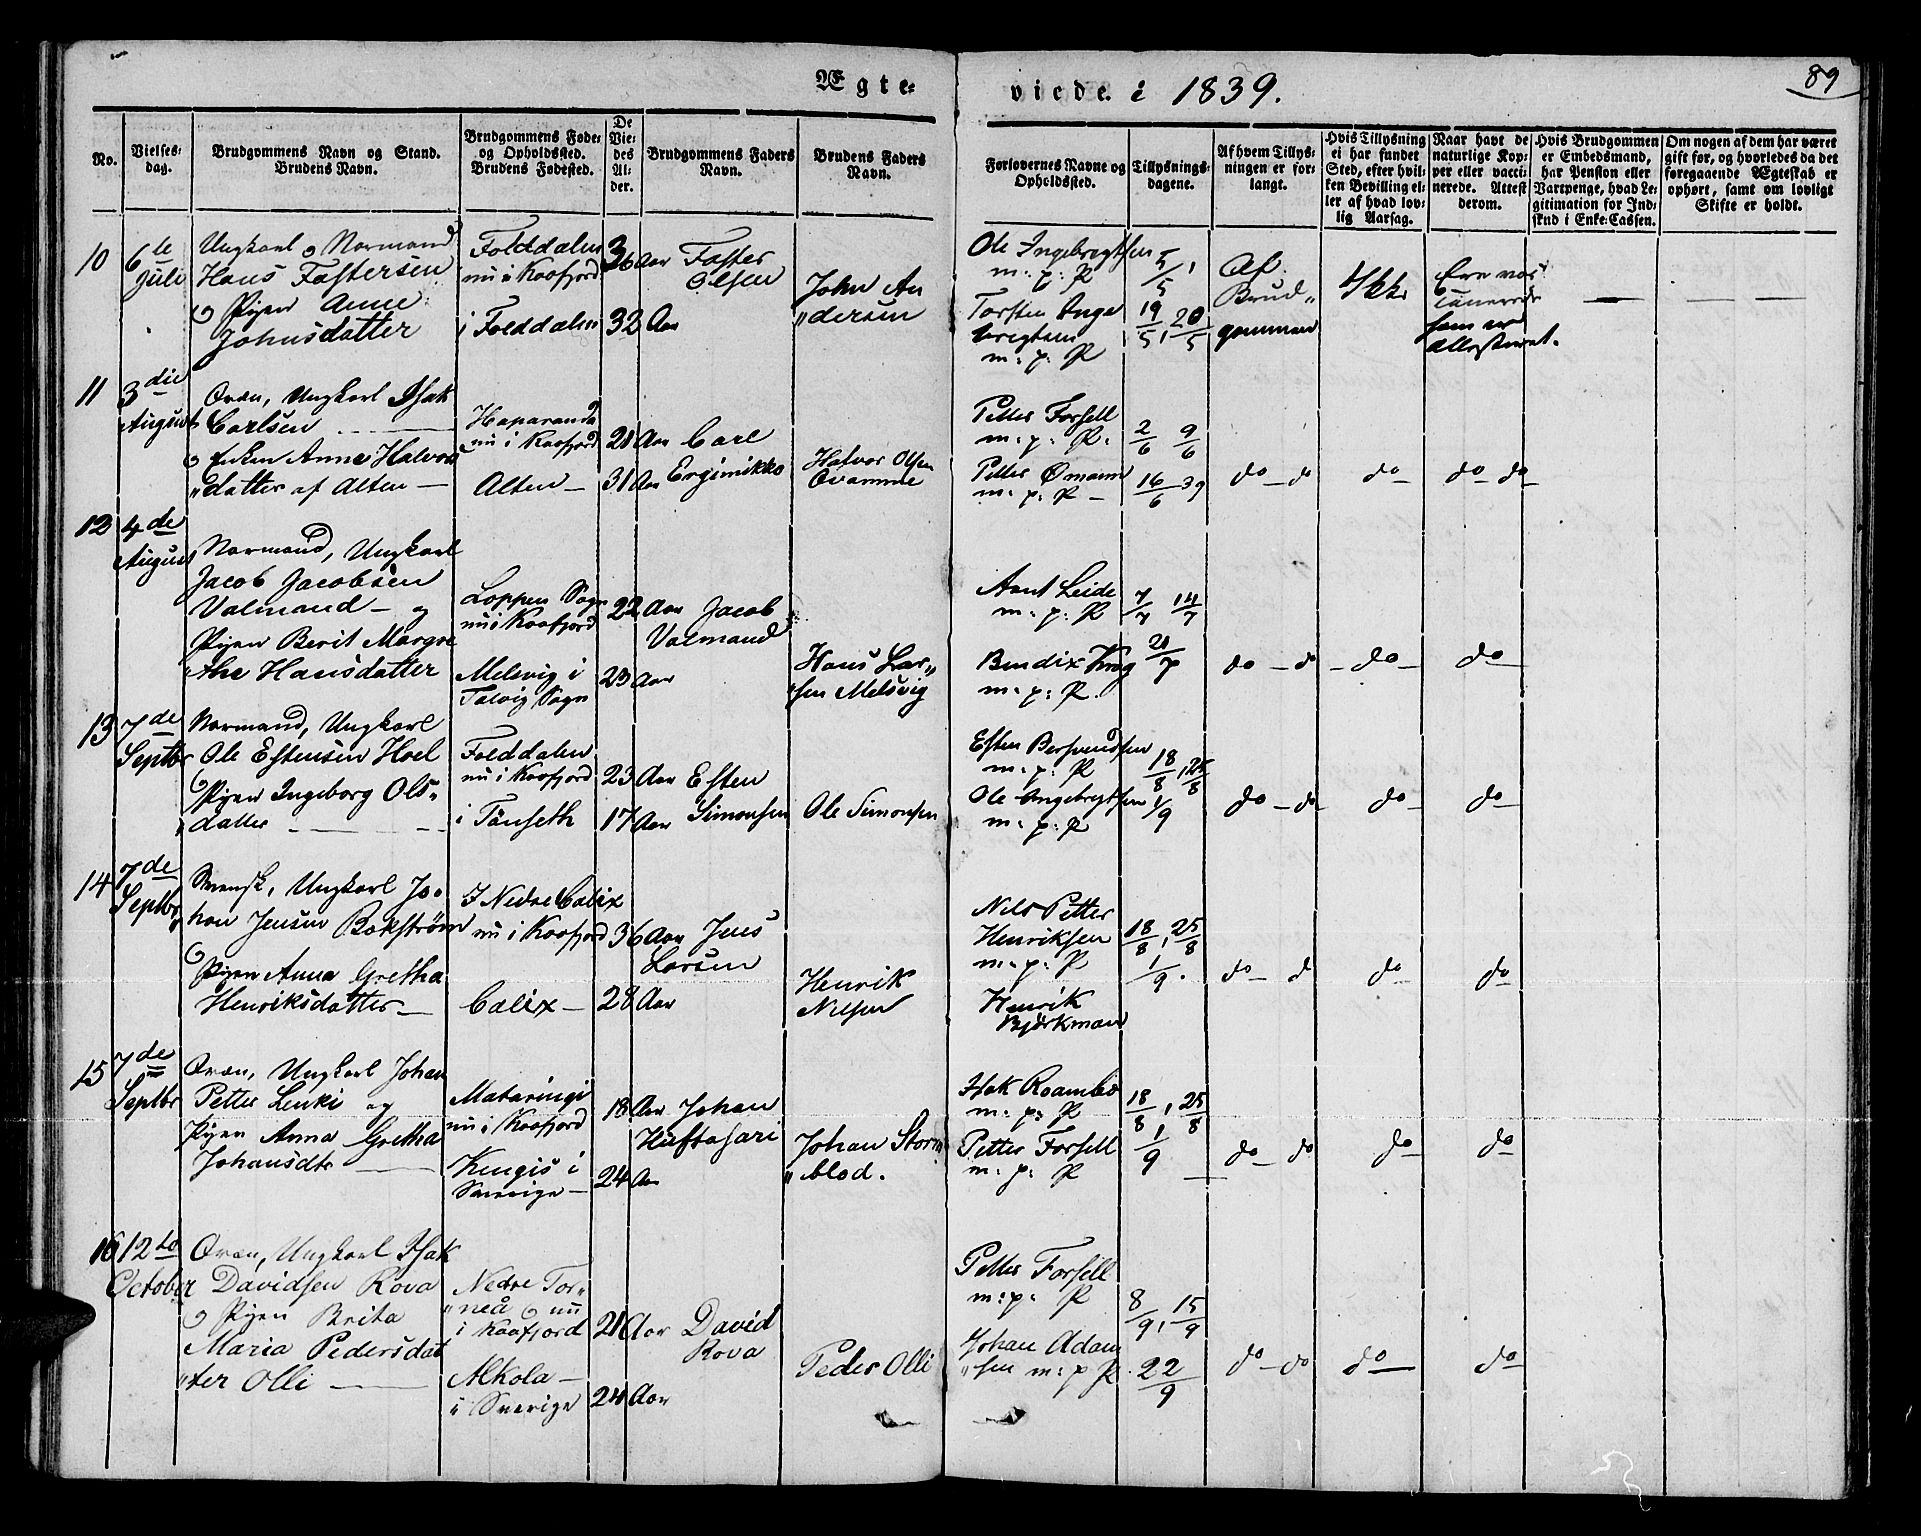 Ægte-
viede i 1839.
89
No.
Vielses-
dag.
Brudgommens Navn og Stand.
Brudens Navn.
Brudgommens Føde-
og Opholdssted.
Brudens Fødested.
De
Vie-
des
Al-
der.
Brudgommens Faders
Navn.
Brudens Faders
Navn.
Forlovernes Navne og
Opholdssted.
Tillysnings-
dagene.
Af hvem Tillys-
ningen er for-
langt.
Hvis Tillysning
ei har fundet
Sted, efter hvil-
ken Bevilling el-
ler af hvad lov-
lig Aarsag.
Naar havt de
naturlige Kop-
per eller vacci-
nerede. Attest
derom.
Hvis Brudgommen
er Embedsmand,
har Pension eller
Vartpenge, hvad Le-
gitimation for Ind-
skud i Enke-Cassen.
Om nogen af dem har været
gift før, og hvorledes da det
foregaaende Ægteskab er
ophørt, samt om lovligt
Skifte er holdt.
10
6te
Juli
Ungkarl og Normand
Hans Fastersen
og Pigen Anne
Johnsdatter
Folddalen
nu i Kaafjord
i Folddalen
36 Aar
32 Aar
Faster
Olsen
John An
"dersen
Ole Ingebrigtsen
m: p: P
Torsten Inge
brigtsen
m: p: P
5/5,
19/5, 20/5
Af
Brud"
gommen
Ikke
Ere vac
cinerede
som er
attesteret.
11
3die
August
Qvæn, Ungkarl Isak
Carlsen
og Enken Anne Halvors
"datter af Alten —
Haparanda
nu i Kaafjord
Alten —
21 Aar
31 Aar
Carl
Ergimikko
Halvor Olsen
Qvamme
Petter Forsell
m: p: P.
Petter Ømann
m: p: P —
2/6 9/6
16/6 39
do — do
do
do do
12
4de
August
Normand, Ungkarl
Jacob Jacobsen
Valmand — og
Pigen Berit Margre
"the Hansdatter
Loppen Sogn
nu i Kaafjord
Melsvig i
Talvig Sogn
22 Aar
23 Aar
Jacob
Valmand
Hans Lar"
"sen Melsvig
Aant Leide
m: p: P
Bendix Krog
m: p: P.
7/7 14/7
21/7
do — do
do
do
13
7de
Septbr
Normand, Ungkarl
Ole Estensen Hoel
og
Pigen Ingeborg Ols"
"datter
Folddalen
nu i Kaafjord
i Tønseth
23 Aar
17 Aar
Esten
Simonsen
Ole Simonsen
Esten Bersvendsen
m: p: P
Ole Ingebrigtsen
m: p: P
18/8, 25/8
1/9
do — do
do
do
14
7de
Septbr
Svensk, Ungkarl Jo"
han Jensen Bakstrøm
og
Pigen Anna Gretha
Henriksdatter —
I Nedre Calix
nu i Kaafjord
Calix —
36 Aar
28 Aar
Jens
Larsen
Henrik
Nilsen
Nils Petter
Henriksen
m: p: P
Henrik
Bjørkman
18/8, 25/8
1/9.
do — d
do
do
15
7de
Septbr
Qvæn, Ungkarl Johan
Petter Lenki og
Pigen Anna Gretha
Johansdtr
Mataringi
nu i Kaafjord
Kengis i
Sverige —
18 Aar
24 Aar
Johan
Huftasari
Johan Storm
"blad.
Isak Roambo
m: p: P
Petter Forsell
m: p: P
18/8, 25/8
1/9
do — do
do
do
16
12te
October
Qvæn, Ungkarl Isak
Davidsen Rova
og Pigen Brita
Maria Pedersdat
"ter Olli
Nedre Tor"
"neå og nu
i Kaafjord
Alkola —
i Sverige
21 Aar
24 Aar
David
Rova
Peder Olli
Petter Forsell
m: p: P
Johan Adam
"sen m: p P.
8/9, 15/9
22/9
do — do
do
do